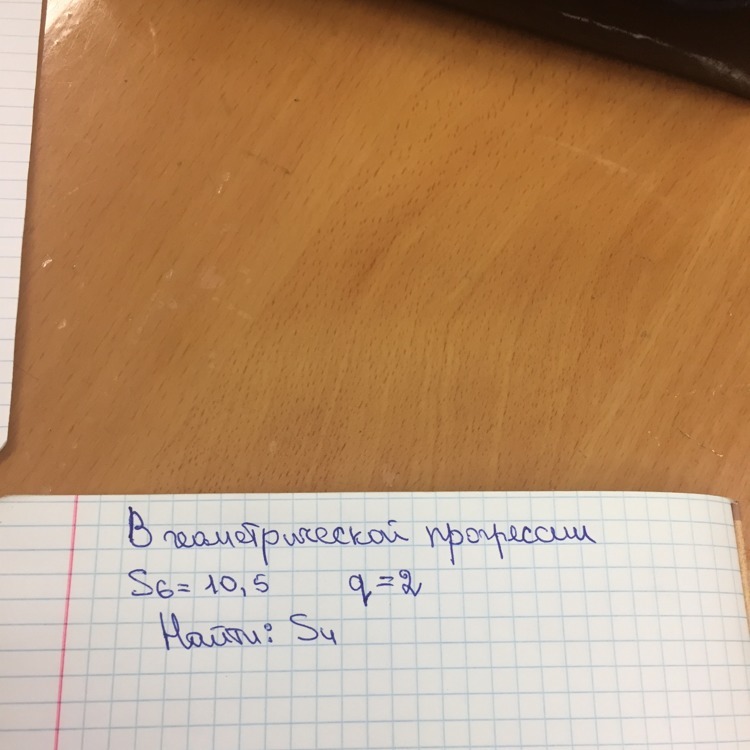 В геометрической прогрессии
S6 = 10,5 q = 2
Найти: S4